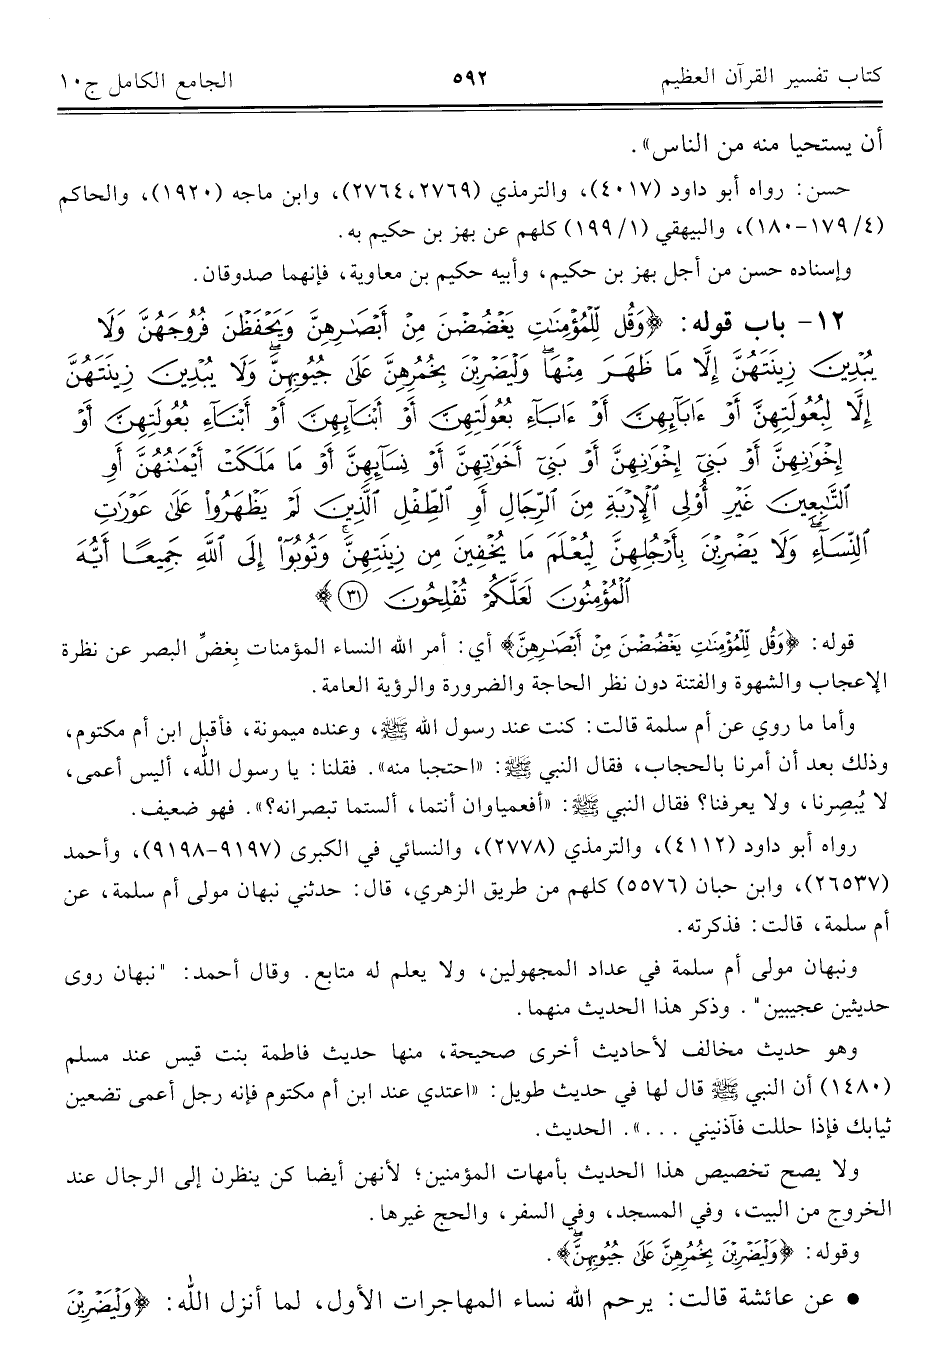 كتاب تفسير القرآن العظيم ٥٩٢ الجامع الكامل ج١٠
أن يستحيا منه من الناس».
حسن: رواه أبو داود (٤٠١٧)، والترمذي (٢٧٦٩، ٢٧٦٤)، وابن ماجه (١٩٢٠)، والحاكم
(٤/ ١٧٩-١٨٠)، والبيهقي (١/ ١٩٩) كلهم عن بهز بن حكيم به.
وإسناده حسن من أجل بهز بن حكيم، وأبيه حكيم بن معاوية، فإنهما صدوقان.
١٢- باب قوله: ﴿وَقُل لِّلْمُؤْمِنَٰتِ يَغْضُضْنَ مِنْ أَبْصَٰرِهِنَّ وَيَحْفَظْنَ فُرُوجَهُنَّ وَلَا
يُبْدِينَ زِينَتَهُنَّ إِلَّا مَا ظَهَرَ مِنْهَاۖ وَلْيَضْرِبْنَ بِخُمُرِهِنَّ عَلَىٰ جُيُوبِهِنَّۖ وَلَا يُبْدِينَ زِينَتَهُنَّ
إِلَّا لِبُعُولَتِهِنَّ أَوْ ءَابَآئِهِنَّ أَوْ ءَابَآءِ بُعُولَتِهِنَّ أَوْ أَبْنَآئِهِنَّ أَوْ أَبْنَآءِ بُعُولَتِهِنَّ أَوْ
إِخْوَٰنِهِنَّ أَوْ بَنِىٓ إِخْوَٰنِهِنَّ أَوْ بَنِىٓ أَخَوَٰتِهِنَّ أَوْ نِسَآئِهِنَّ أَوْ مَا مَلَكَتْ أَيْمَٰنُهُنَّ أَوِ
ٱلتَّٰبِعِينَ غَيْرِ أُو۟لِى ٱلْإِرْبَةِ مِنَ ٱلرِّجَالِ أَوِ ٱلطِّفْلِ ٱلَّذِينَ لَمْ يَظْهَرُوا۟ عَلَىٰ عَوْرَٰتِ
ٱلنِّسَآءِۖ وَلَا يَضْرِبْنَ بِأَرْجُلِهِنَّ لِيُعْلَمَ مَا يُخْفِينَ مِن زِينَتِهِنَّۚ وَتُوبُوٓا۟ إِلَى ٱللَّهِ جَمِيعًا أَيُّهَ
ٱلْمُؤْمِنُونَ لَعَلَّكُمْ تُفْلِحُونَ (٣١)﴾
قوله: ﴿وَقُل لِّلْمُؤْمِنَٰتِ يَغْضُضْنَ مِنْ أَبْصَٰرِهِنَّ﴾ أي: أمر الله النساء المؤمنات بِغضِّ البصر عن نظرة
الإعجاب والشهوة والفتنة دون نظر الحاجة والضرورة والرؤية العامة.
وأما ما روي عن أم سلمة قالت: كنت عند رسول الله ﷺ، وعنده ميمونة، فأقبل ابن أم مكتوم،
وذلك بعد أن أمرنا بالحجاب، فقال النبي ﷺ: «احتجبا منه». فقلنا: يا رسول الله، أليس أعمى،
لا يُبصِرنا، ولا يعرفنا؟ فقال النبي ﷺ: «أفعمياوان أنتما، ألستما تبصرانه؟». فهو ضعيف.
رواه أبو داود (٤١١٢)، والترمذي (٢٧٧٨)، والنسائي في الكبرى (٩١٩٧-٩١٩٨)، وأحمد
(٢٦٥٣٧)، وابن حبان (٥٥٧٦) كلهم من طريق الزهري، قال: حدثني نبهان مولى أم سلمة، عن
أم سلمة، قالت: فذكرته.
ونبهان مولى أم سلمة في عداد المجهولين، ولا يعلم له متابع. وقال أحمد: "نبهان روى
حديثين عجيبين". وذكر هذا الحديث منهما.
وهو حديث مخالف لأحاديث أخرى صحيحة، منها حديث فاطمة بنت قيس عند مسلم
(١٤٨٠) أن النبي ﷺ قال لها في حديث طويل: «اعتدي عند ابن أم مكتوم فإنه رجل أعمى تضعين
ثيابك فإذا حللت فآذنيني ...». الحديث.
ولا يصح تخصيص هذا الحديث بأمهات المؤمنين؛ لأنهن أيضا كن ينظرن إلى الرجال عند
الخروج من البيت، وفي المسجد، وفي السفر، والحج غيرها.
وقوله: ﴿وَلْيَضْرِبْنَ بِخُمُرِهِنَّ عَلَىٰ جُيُوبِهِنَّۖ﴾.
• عن عائشة قالت: يرحم الله نساء المهاجرات الأول، لما أنزل الله: ﴿وَلْيَضْرِبْنَ